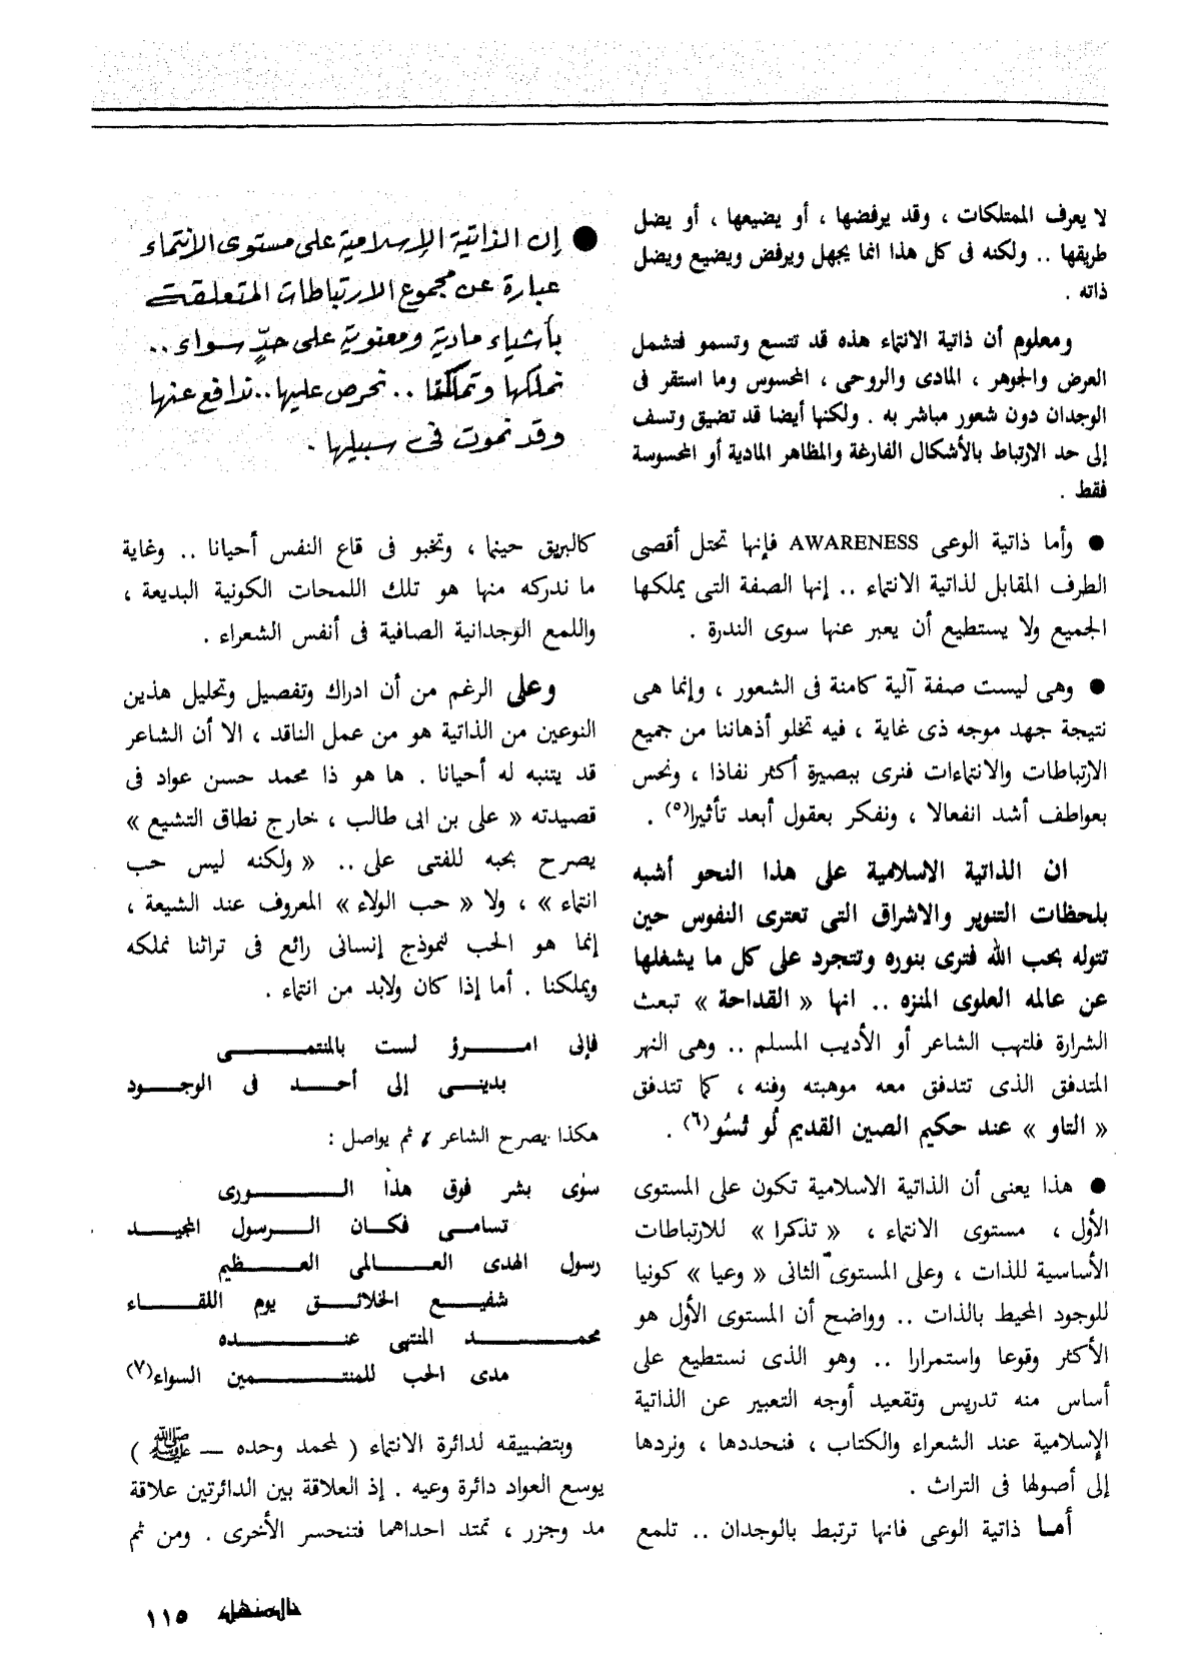 لا يعرف الممتلكات ، وقد يرفضها ، أو يضيعها ، أو يضل
طريقها .. ولكنه فى كل هذا انما يجهل ويرفض ويضيع ويضل
ذاته .
ومعلوم أن ذاتية الانتماء هذه قد تتسع وتسمو فتشمل
العرض والجوهر ، المادى والروحى ، المحسوس وما استقر فى
الوجدان دون شعور مباشر به . ولكنها أيضا قد تضيق وتسف
إلى حد الارتباط بالأشكال الفارغة والمظاهر المادية أو المحسوسة
فقط .
● وأما ذاتية الوعى AWARENESS فإنها تحتل أقصى
الطرف المقابل لذاتية الانتماء .. إنها الصفة التى يملكها
الجميع ولا يستطيع أن يعبر عنها سوى الندرة .
● وهى ليست صفة آلية كامنة فى الشعور ، وإنما هى
نتيجة جهد موجه ذى غاية ، فيه تخلو أذهاننا من جميع
الارتباطات والانتماءات فنرى ببصيرة أكثر نفاذا ، ونحس
بعواطف أشد انفعالا ، ونفكر بعقول أبعد تأثيرا(٥) .
ان الذاتية الاسلامية على هذا النحو أشبه
بلحظات التنوير والاشراق التى تعترى النفوس حين
تتوله بحب الله فترى بنوره وتتجرد على كل ما يشغلها
عن عالمه العلوى المنزه .. انها « القداحة » تبعث
الشرارة فلتهب الشاعر أو الأديب المسلم .. وهى النهر
المتدفق الذى تتدفق معه موهبته وفنه ، كما تتدفق
« التاو » عند حكيم الصين القديم لُو تْسُو(٦) .
● هذا يعنى أن الذاتية الاسلامية تكون على المستوى
الأول ، مستوى الانتماء ، « تذكرا » للارتباطات
الأساسية للذات ، وعلى المستوى الثانى « وعيا » كونيا
للوجود المحيط بالذات .. وواضح أن المستوى الأول هو
الأكثر وقوعا واستمرارا .. وهو الذى نستطيع على
أساس منه تدريس وتقعيد أوجه التعبير عن الذاتية
الإسلامية عند الشعراء والكتاب ، فنحددها ، ونردها
إلى أصولها فى التراث .
أما ذاتية الوعى فانها ترتبط بالوجدان .. تلمع
● إن الذاتية الإسلامية على مستوى الانتماء
عبارة عن مجموع الارتباطات المتعلقة
بأشياء مادية ومعنوية على حدٍّ سواء ..
نملكها وتملكنا .. نحرص عليها .. ندافع عنها
وقد نموت فى سبيلها .
كالبريق حينما ، وتخبو فى قاع النفس أحيانا .. وغاية
ما ندركه منها هو تلك اللمحات الكونية البديعة ،
واللمع الوجدانية الصافية فى أنفس الشعراء .
وعلى الرغم من أن ادراك وتفصيل وتحليل هذين
النوعين من الذاتية هو من عمل الناقد ، الا أن الشاعر
قد يتنبه له أحيانا . ها هو ذا محمد حسن عواد فى
قصيدته « على بن ابى طالب ، خارج نطاق التشيع »
يصرح بحبه للفتى على .. « ولكنه ليس حب
انتماء » ، ولا « حب الولاء » المعروف عند الشيعة ،
إنما هو الحب لنموذج إنسانى رائع فى تراثنا نملكه
ويملكنا . أما إذا كان ولابد من انتماء .
فإنى امـــرؤ لست بالمنتمـــى
بدينـــى إلى أحـــد فى الوجـــود
هكذا يصرح الشاعر ، ثم يواصل :
سوى بشر فوق هذا الـــورى
تسامـــى فكـــان الـــرسول المجيـــد
رسول الهدى العـــالمى العـــظيم
شفيـــع الخلائـــق يوم اللقـــاء
محمـــد المنتهى عنـــده
مدى الحب للمنتـــمين السواء(٧)
وبتضييقه لدائرة الانتماء ( لمحمد وحده — ﷺ )
يوسع العواد دائرة وعيه . إذ العلاقة بين الدائرتين علاقة
مد وجزر ، تمتد احداهما فتنحسر الأخرى . ومن ثم
المنهل ١١٥